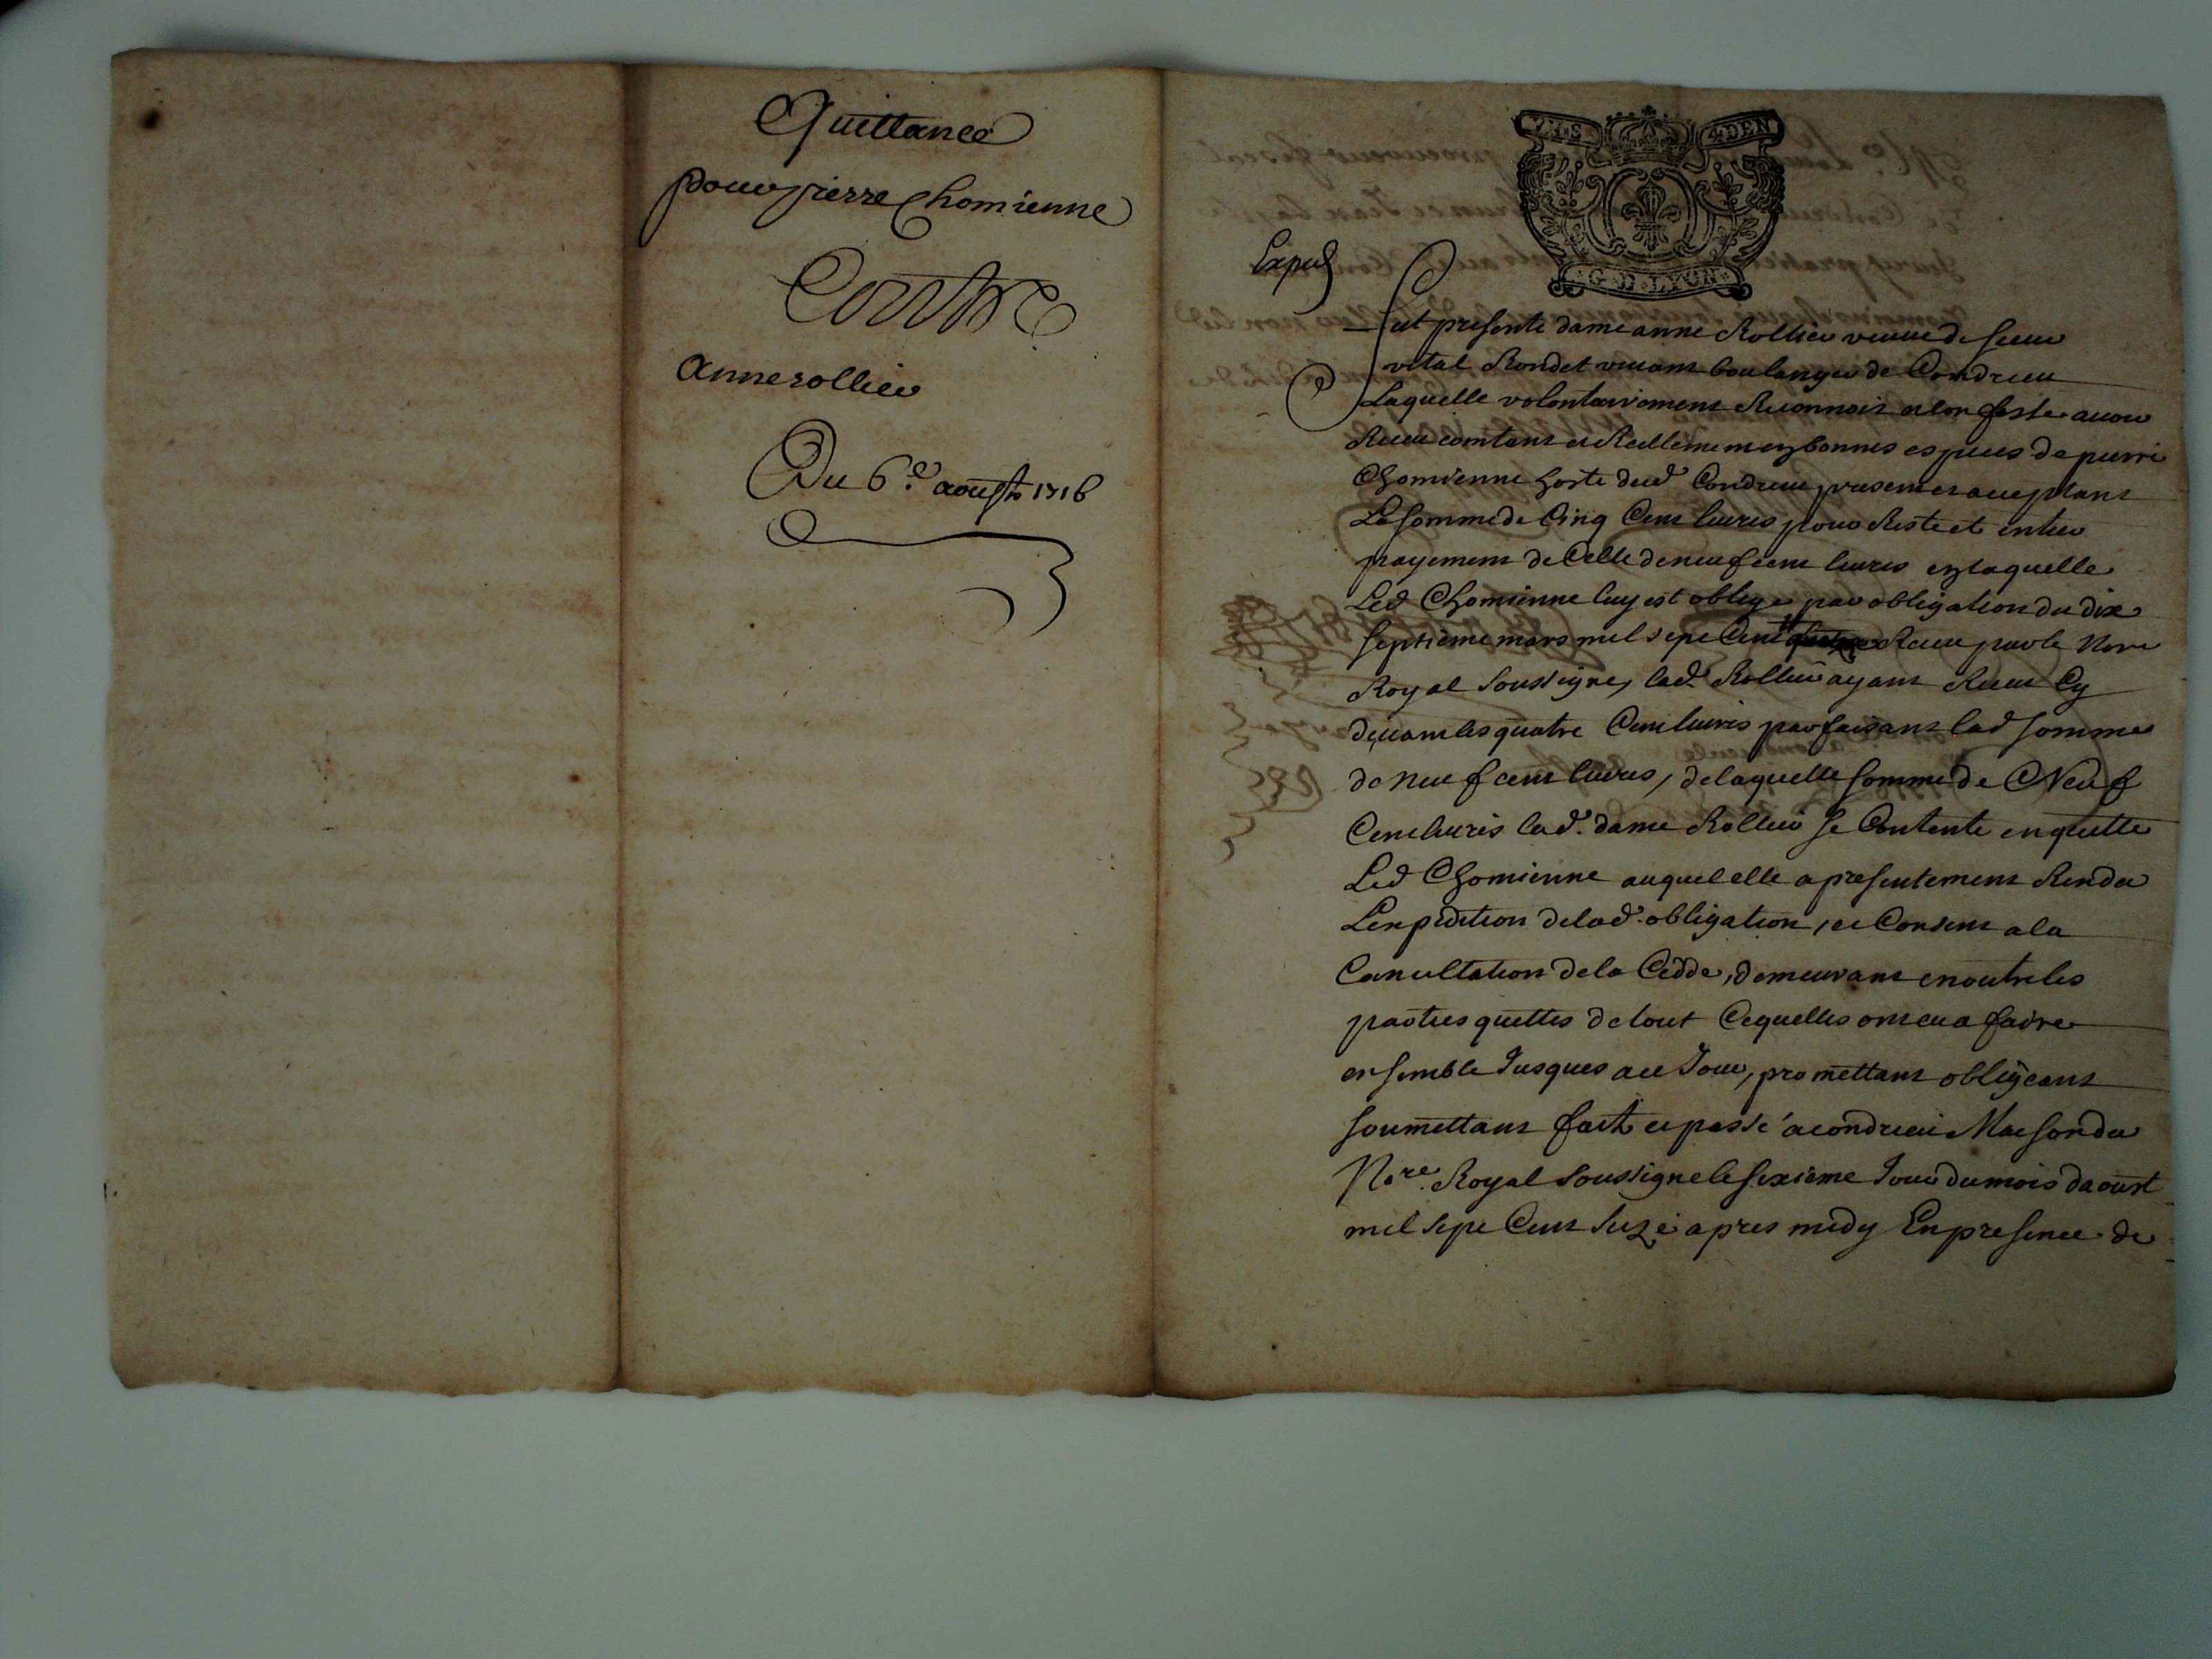 Quittance
pour pierre Chomienne
Contre
anne rollier
Du 6.e aoust 1716
7.I.S 4.DEN
G.D.LYON
Exped
Fut presente dame anne Rollier veuve de sieur
vital Rondet vivant boulanger de Condrieu
Laquelle volontairement Reconnoit et Confesse avoir
Receu comtant et Reellement en bonnes especes de pierre
Chomienne hoste dud Condrieu present et acceptant
La somme de Cinq Cent livres pour Reste et entier
payement de Celle de neuf cent livres en laquelle
Led Chomienne luy est obligé par obligation du dix
septieme mars mil sept Cent Receue par le Nore
Royal soussigne, lad. Rollier ayant Receu Cy
devant les quatre Cent livres parfaisant lad somme
de neuf cent livres, de laquelle somme de Neuf
Cent livres lad. dame Rollier se Contente en quitte
Led Chomienne auquel elle a presentement Rendu
L'expedition de lad. obligation, et Consent a la
Cancellation de la Cedde, demeurant en outre les
parties quittes de tout Ce quelles ont eu a faire
ensemble Jusques a ce Jour, promettant obligeant
soumettant fait et passé a condrieu Maison du
Nore. Royal soussigne le sixieme Jour du mois daoust
mil sept Cent seize apres midy En presence de